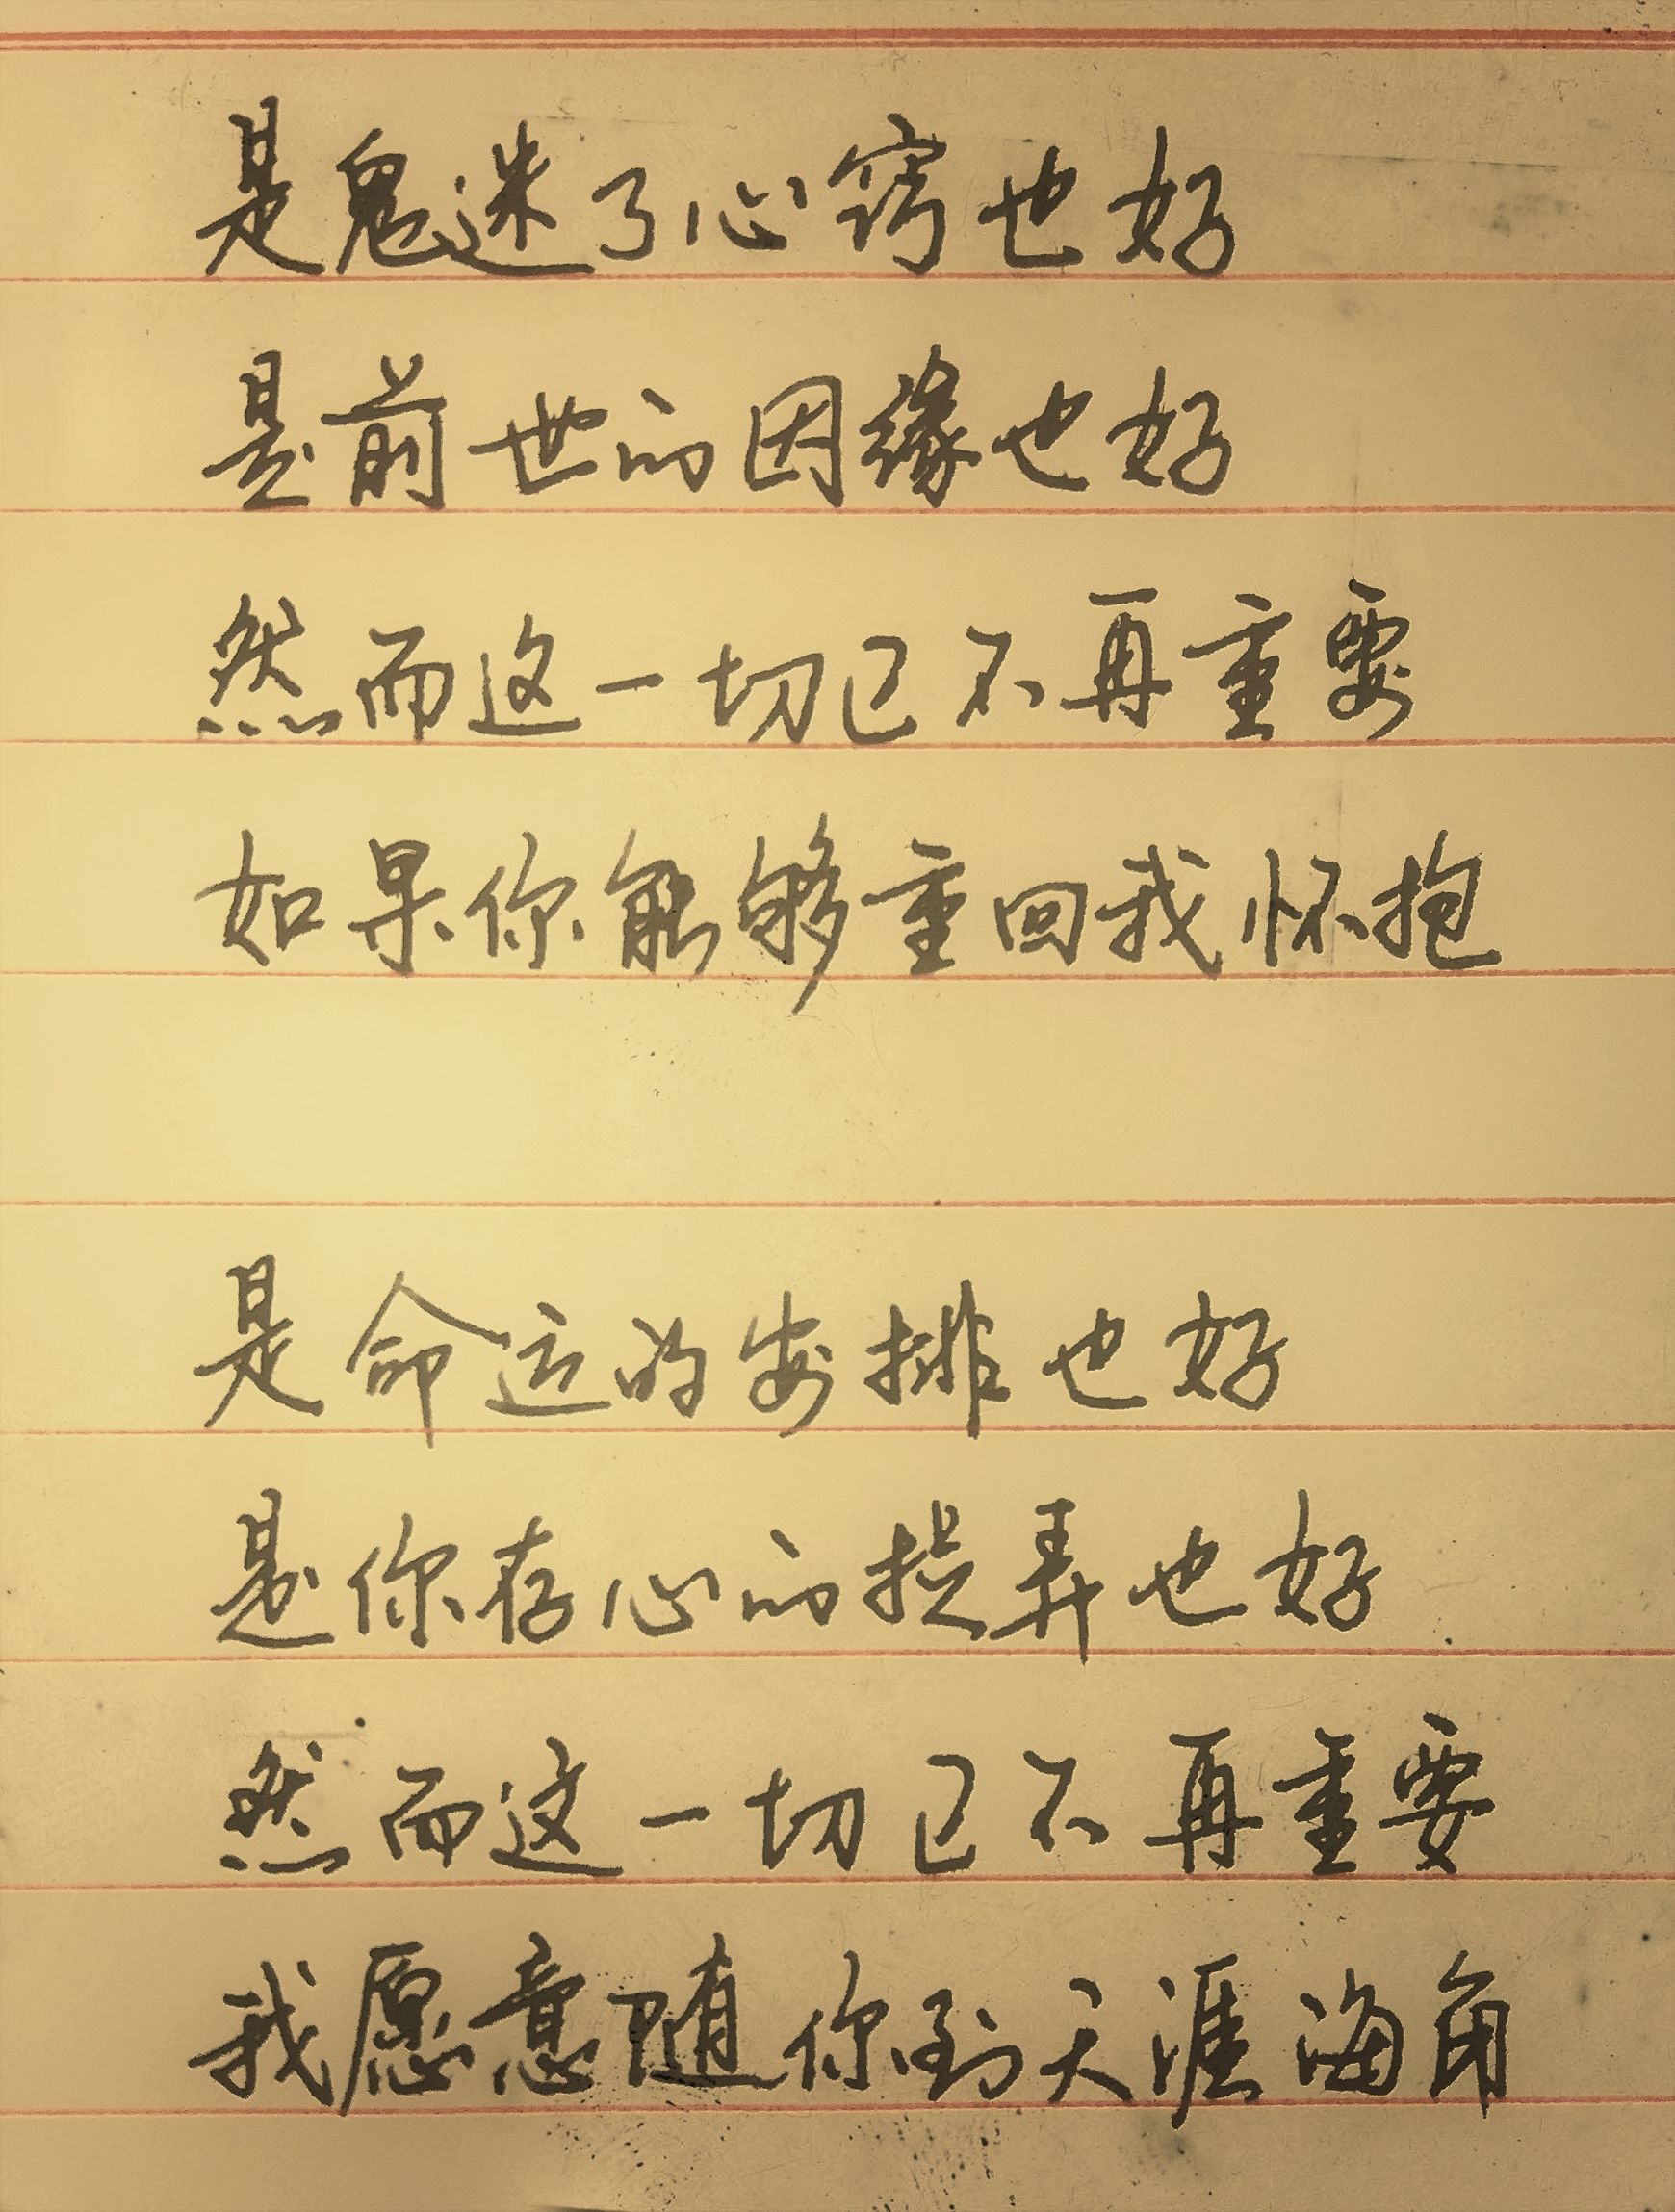 是鬼迷了心窍也好
是前世的因缘也好
然而这一切已不再重要
如果你能够重回我怀抱
是命运的安排也好
是你存心的捉弄也好
然而这一切已不再重要
我愿意随你到天涯海角